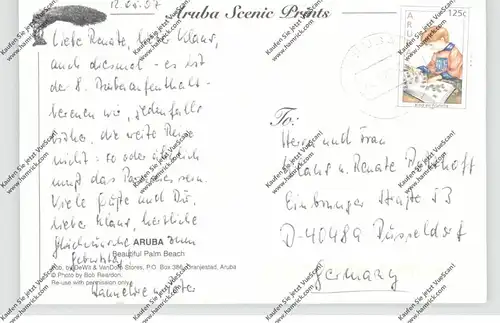 12.05.07
Aruba Scenic Prints
ARUBA 125c
Liebe Renate, lieber Klaus,
auch diesmal - es ist
der 8. Arubaaufenthalt -
bereuen wir, jedenfalls
bisher, die weite Reise
nicht: so oder ähnlich
muß das Paradies sein.
Viele Grüße und Dir,
lieber Klaus, herzliche
Glückwünsche zum
Geburtstag
Hannelore
To:
Herrn und Frau
Klaus u. Renate
Einbrunger Straße 53
D-40489 Düsseldorf
Germany
ARUBA
Beautiful Palm Beach
by DeWit & VanDorp Stores, P.O. Box 386, Oranjestad, Aruba
© Photo by Bob Reardon.
Re-use with permission only.
Kaufen Sie jetzt VueScan!
www.hamrick.com